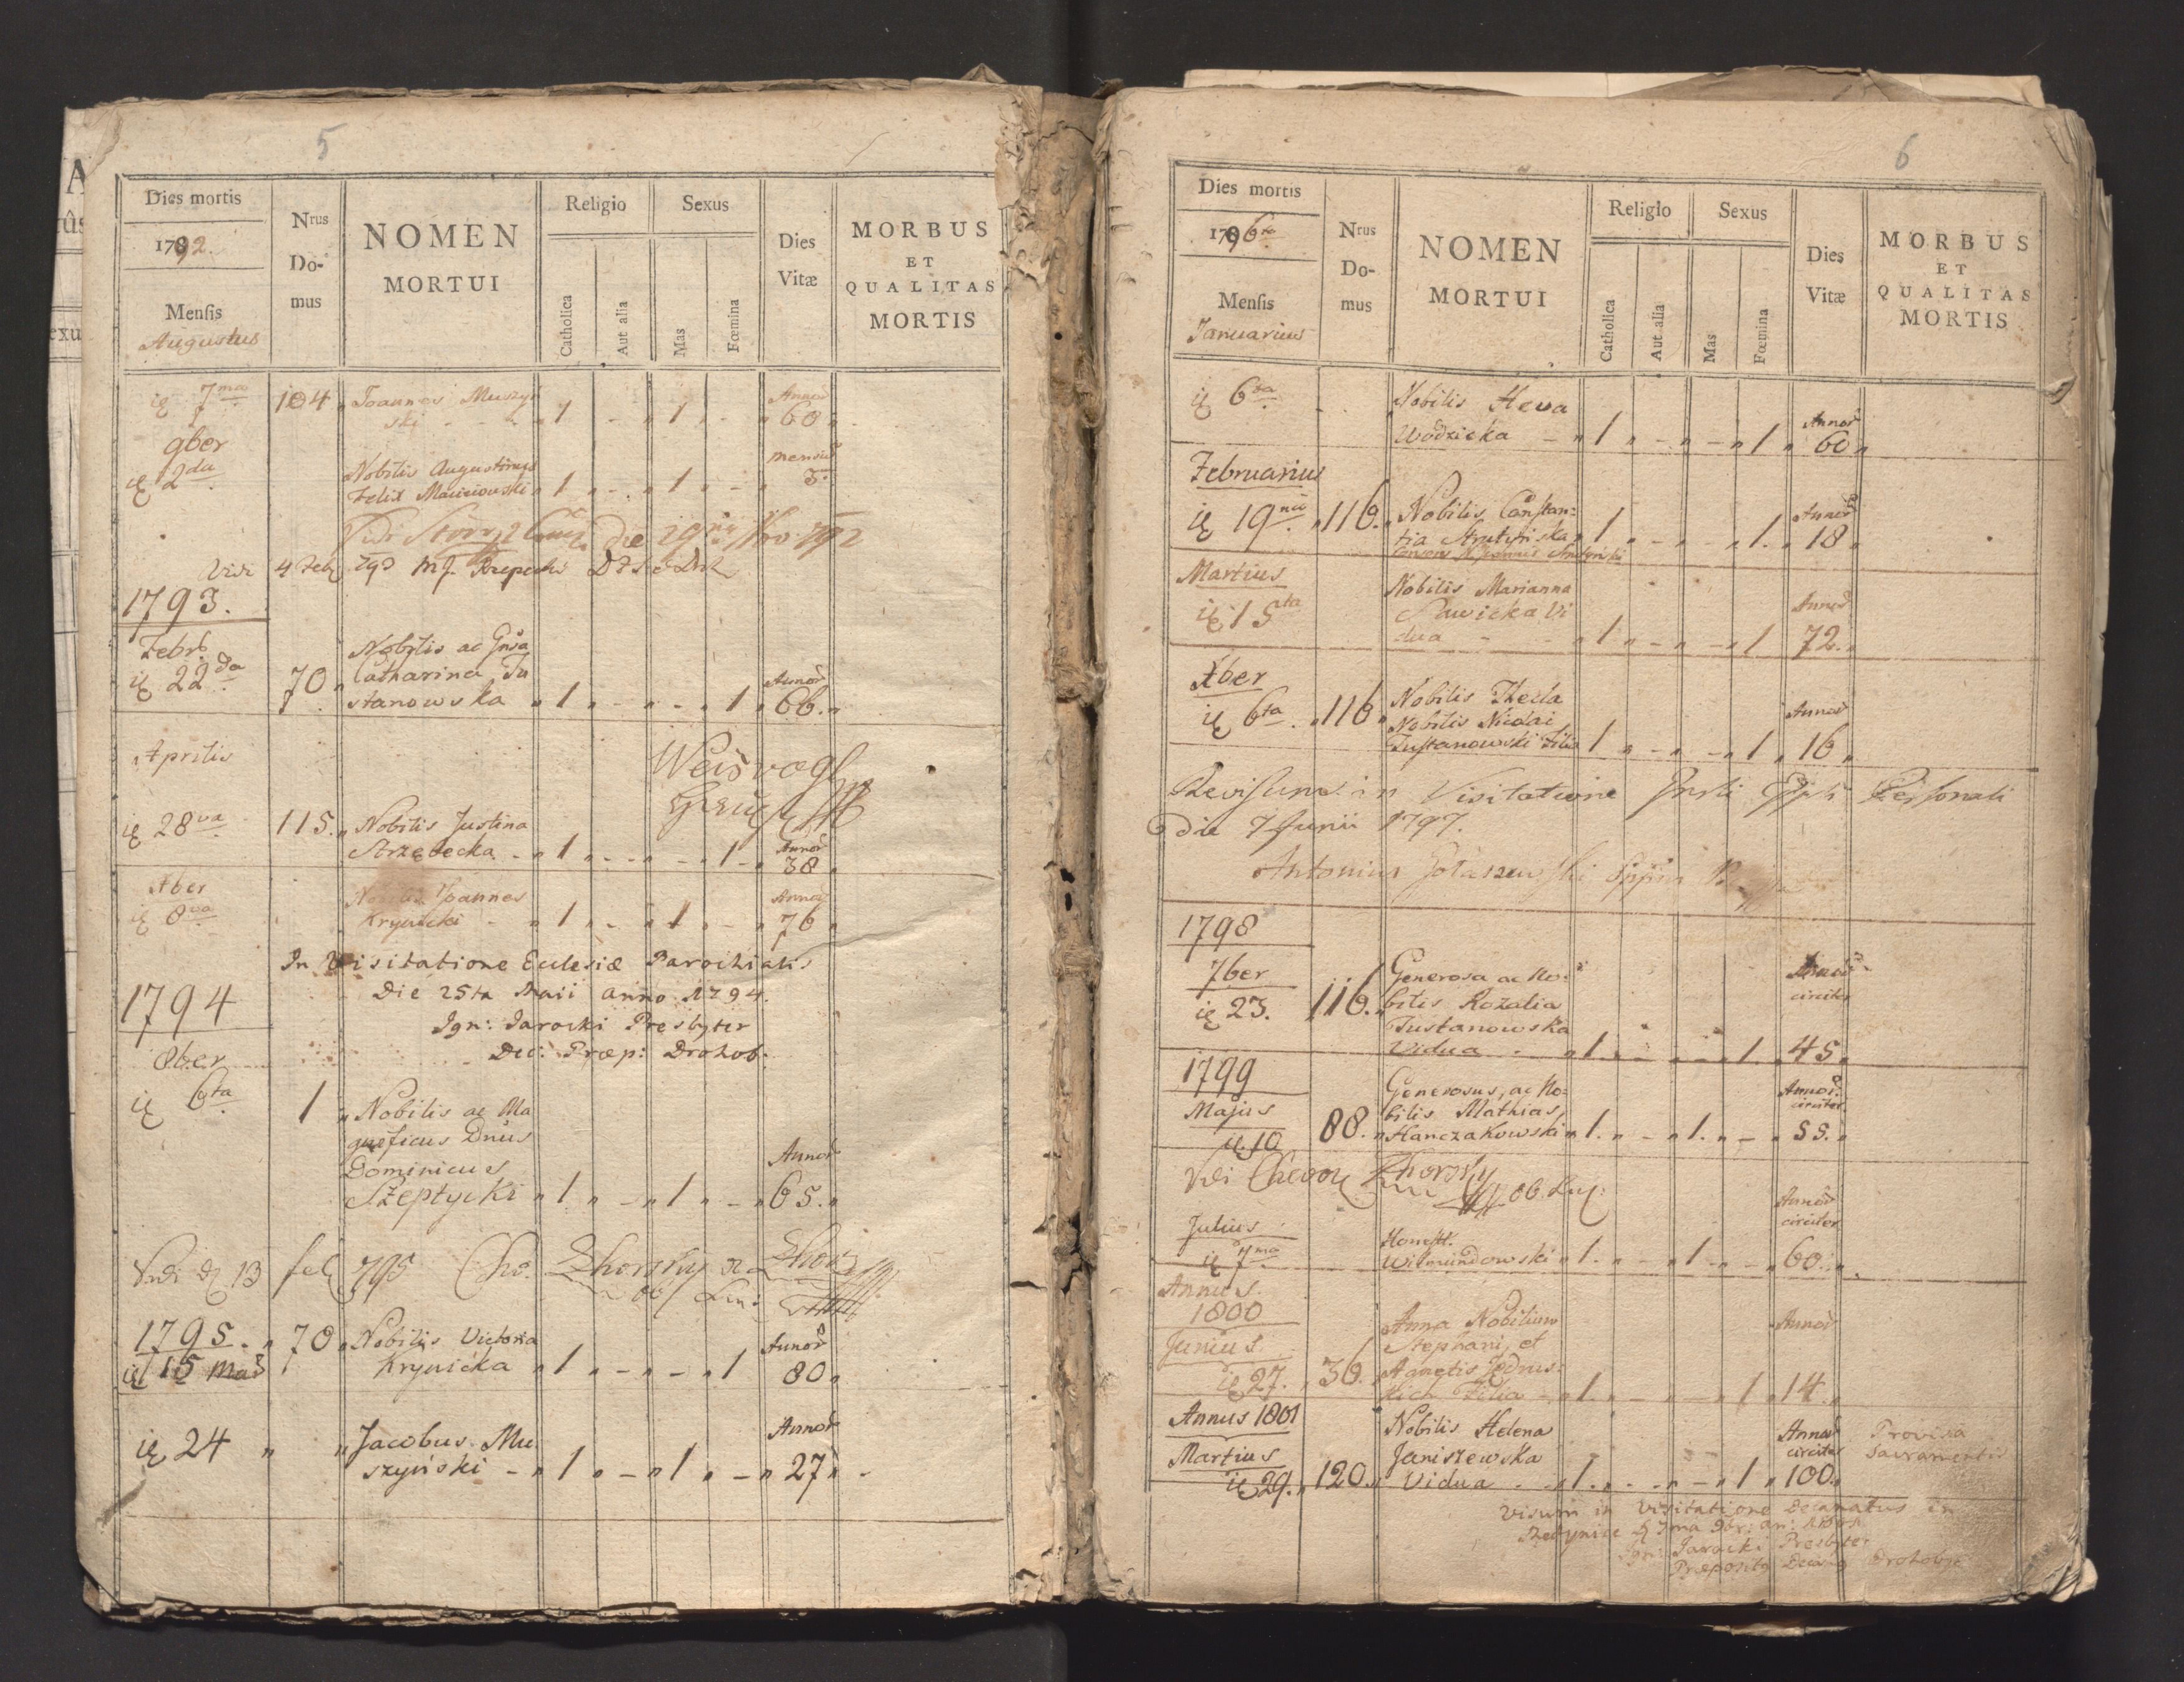 5
Dies mortis
1792.
Mensis
Augustus
Nrus
Do-
mus
NOMEN
MORTUI
Religio
Catholica
Aut alia
Sexus
Mas
Fœmina
Dies
Vitæ
MORBUS
ET
QUALITAS
MORTIS
7ma 104 Joannes Muszyń
ski 1 - 1 - Annor 60
9ber
2da Nobilis Augustinus
Felix Maciiowski 1 - 1 - mensium 3
Vidi
Vidi 4 Feb
1793.
Febr.
22da 70 Nobilis ac Gnsa
Catharina Tu
stanowska 1 - - 1 Annor 66.
Aprilis
28va 115. Nobilis Justina
Strzelecka 1 - - 1 Annor 38
Xber
8va Nobilis Joannes
Krynicki 1 - 1 - Annor 76
In Visitatione Eclesiæ Parochialis
Die 25ta Maii anno 1794.
Ign: Jarocki Presbyter
Dec: Præp: Drohob:
1794
8ber
6ta 1 Nobilis ac Ma
gnificus Dnus
Dominicus
Szeptycki 1 - 1 - Annor 65.
Vidi 13 feb 795
1795. 70 Nobilis Victoria
15 Maii Krynicka 1 - - 1 Annor 80
24 Jacobus Mu
szyński 1 - 1 - Annor 27
6
Dies mortis
1796to
Mensis
Januarius
Nrus
Do-
mus
NOMEN
MORTUI
Religio
Catholica
Aut alia
Sexus
Mas
Fœmina
Dies
Vitæ
MORBUS
ET
QUALITAS
MORTIS
6ta Nobilis Heva
Wodzicka 1 - - 1 Annor 60
Februarius
19na 116. Nobilis Constan:
tia Strutyńska 1 - - 1. Annor 18
Martius
15ta Nobilis Marianna
Sawicka Vi
dua 1 - - 1 Annor 72.
Xber
6ta 116 Nobilis Thecla
Nobilis Nicolai
Tustanowski Filia 1 - - 1 Annor 16
Revisum in Visitatione Personali
die 7 Junii 1797.
Antonius
1798
7ber
23. 116. Generosa ac No:
bilis Rozalia
Tustanowska
Vidua 1 - - 1 Annor circiter 45
1799
Majus
10 88. Generosus, ac No:
bilis Mathias
Hanczakowski 1. - 1. - Annor. circiter 55.
Vidi
Julius
7ma Honest.
Wilmundowski 1. - 1 - Annor circiter 60.
Annus.
1800
Junius.
27. 36. Anna Nobilium
Stephani, et
Agnetis Jędrus:
kich Filia 1. - - 1 Annor 14.
Annus 1801
Martius
29. 120. Nobilis Helena
Janiszewska
Vidua 1. - - 1 Annor circiter 100. Provisa
Sacramentis
Visum in Visitatione Decanatus in
Ign: Jarocki Presbyter